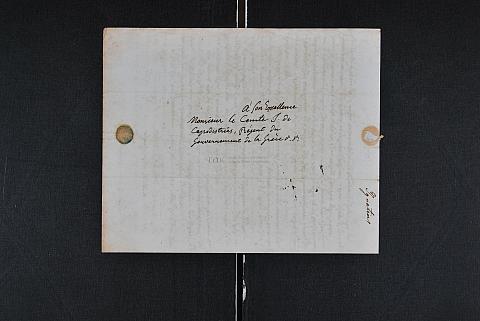 A Son Excellence
Monsieur le Comte J. de
Capodistrias, Régent du
Gouvernement de la Grèce